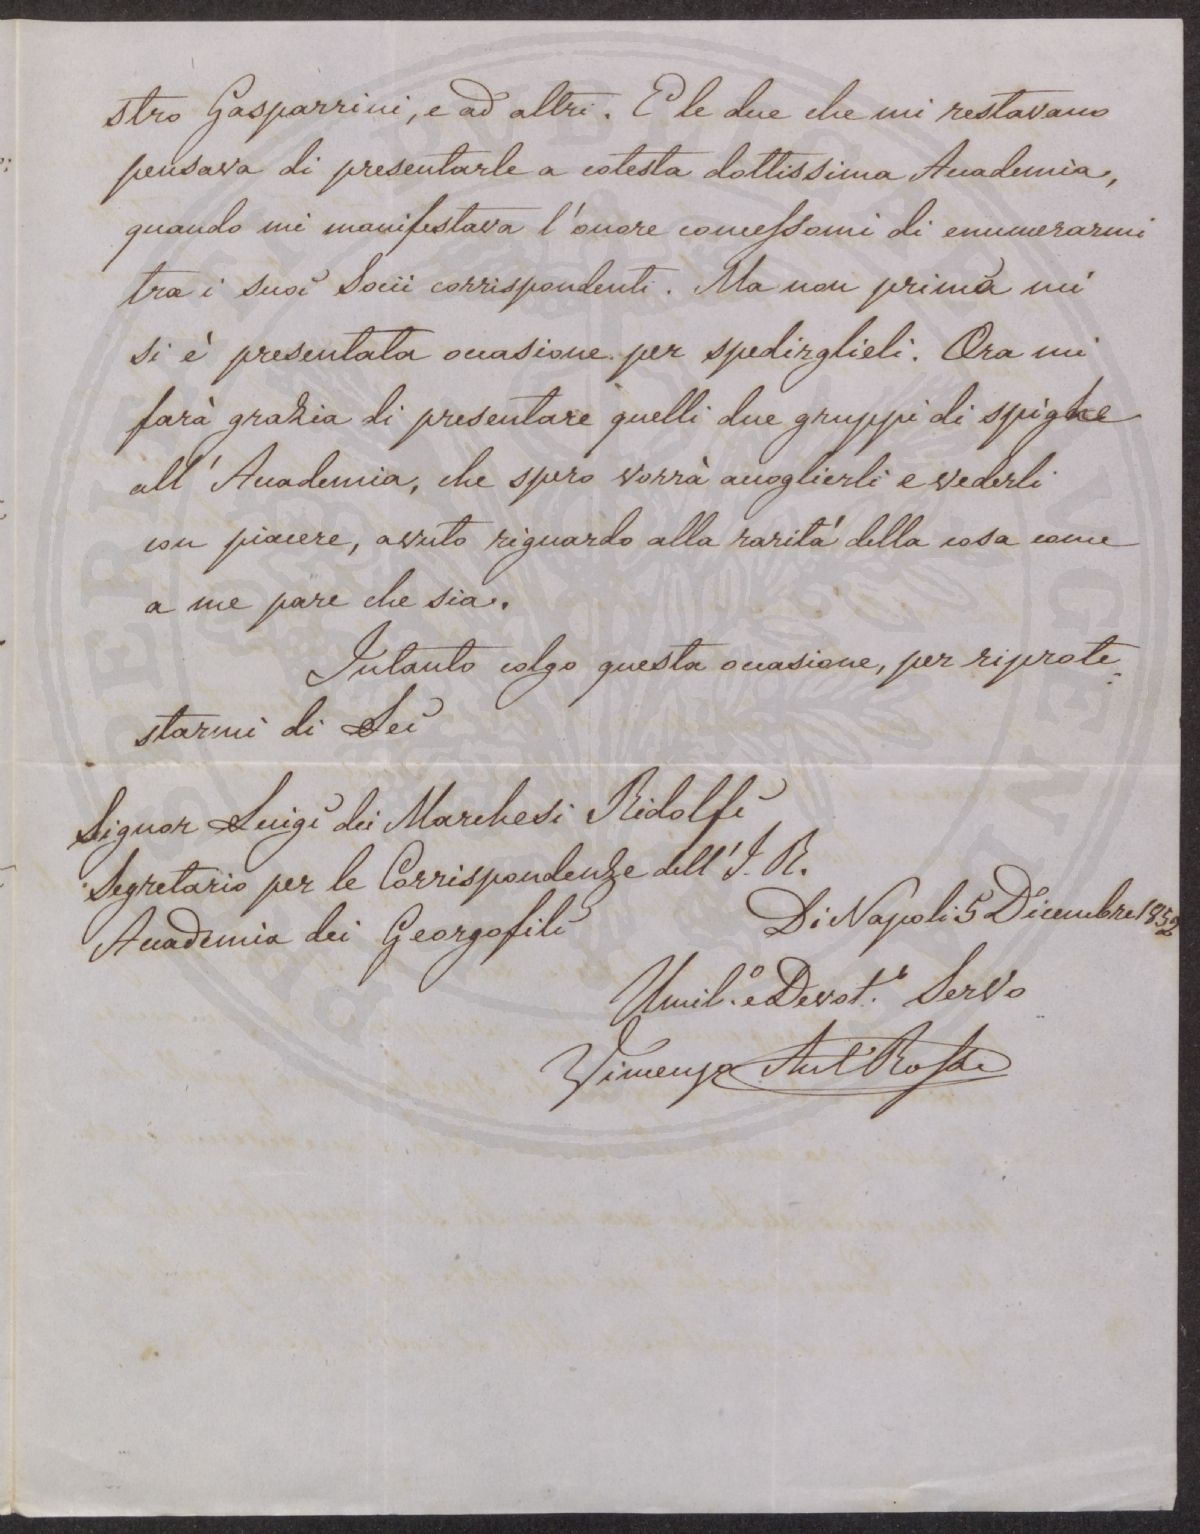 stro Gasparrini, e ad altri. E le due che mi restavano
pensava di presentarle a cotesta dottissima Accademia,
quando mi manifestava l'onore concessomi di enumerarmi
tra i suoi Socii corrispondenti. Ma non prima mi
si è presentata occasione per spedirglieli. Ora mi
farà grazia di presentare quelli due gruppi di spighe
all'Accademia, che spero vorrà accoglierli e vederli
con piacere, avuto riguardo alla rarità della cosa come
a me pare che sia.
Intanto colgo questa occasione, per riprote-
starmi di Lei
Signor Luigi dei Marchesi Ridolfi
Segretario per le Corrispondenze dell'I. R.
Accademia dei Georgofili
Di Napoli 5 Dicembre 1852
Umil.o e Devot.o Servo
Vincenzo Ant. Rossi